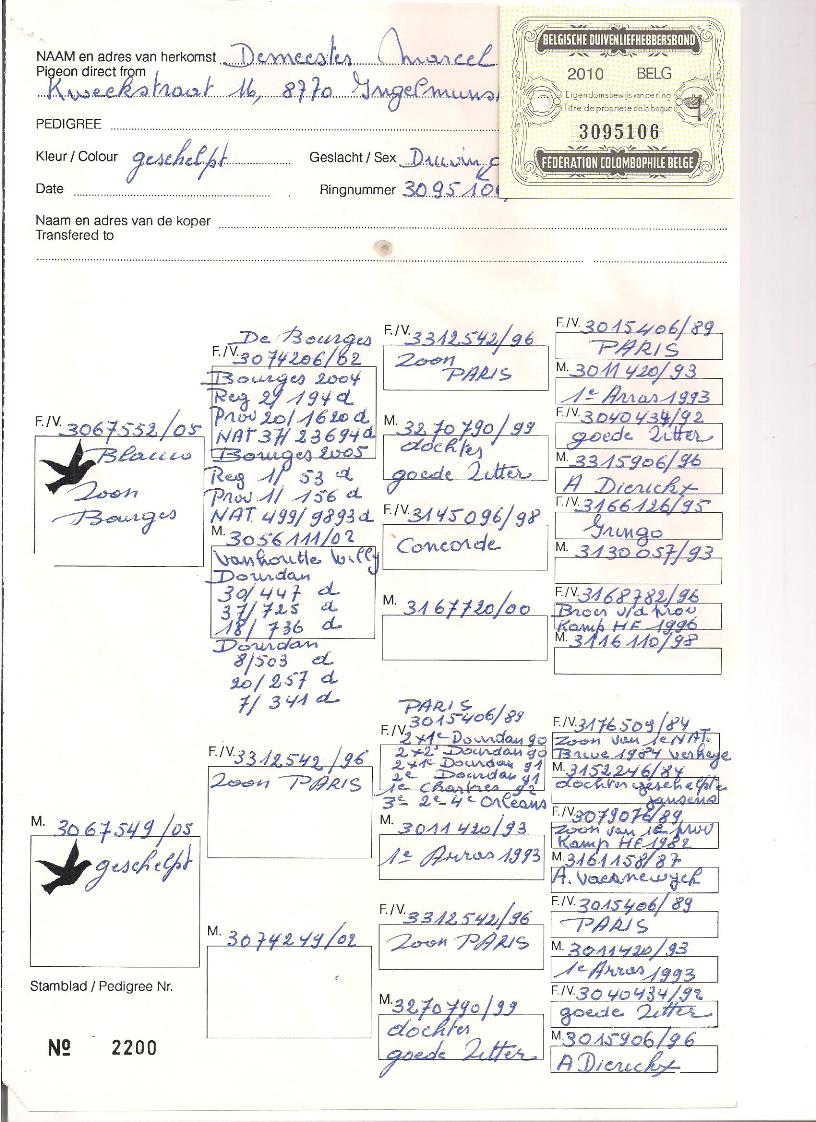 NAAM en adres van herkomst Demeester Marcel
Pigeon direct from
Kweekstraat 16, 8770 Ingelmuns
BELGISCHE DUIVENLIEFHEBBERSBOND
2010 BELG
Eigendomsbewijs van de ring
Titre de propriété de la bague
3095106
FÉDÉRATION COLOMBOPHILE BELGE
PEDIGREE
Kleur / Colour geschelpt Geslacht / Sex Duivin
Date Ringnummer 3095106
Naam en adres van de koper
Transfered to
F./V. 3067552/05
Blauw
Zoon
Bourges
De Bourges
F./V. 3074206/02
Bourges 2004
Reg 2/ 194 d
Prov 20/ 1620 d
NAT 37/ 23694 d
Bourges 2005
Reg 1/ 53 d
Prov 1/ 156 d
NAT 499/9893 d
M. 3056111/02
Vanhoutte Willy
Dourdan
30/447 d
37/725 d
18/ 736 d
Dourdan
8/503 d
20/257 d
7/ 341 d
F./V. 3312542/96
Zoon
PARIS
M. 3270790/99
dochter
goede Zitter
F./V. 3145096/98
Concorde
M. 3167720/00
F./V. 3015406/89
PARIS
M. 3011420/93
1e Arras 1993
F./V. 3040434/92
goede Zitter
M. 3315906/96
A Dierickx
F./V. 3166126/95
Gringo
M. 3130057/93
F./V. 3168782/96
Broer v/d prov
Kamp HF 1996
M. 3116110/98
M. 3067549/05
geschelpt
F./V. 3312542/96
Zoon PARIS
M. 3074249/02
PARIS
3015406/89
F./V. 2x1e Dourdan 90
2x2e Dourdan 90
2x1e Dourdan 91
2e Dourdan 91
1e Chartres 92
3e 2e 4e Orleans
M. 3011420/93
1e Arras 1993
F./V. 3312542/96
Zoon PARIS
M. 3270790/99
dochter
goede Zitter
F./V. 3176509/84
Zoon van 1e NAT.
Brive 1984 Verheye
M. 3152246/84
dochter geschelpte
Jansens
F./V. 3079076/89
Zoon van 1e prov
Kamp HF 1982
M. 3161158/87
A. Vaernewyck
F./V. 3015406/89
PARIS
M. 3011420/93
1e Arras 1993
F./V. 3040434/92
goede Zitter
M. 3015906/96
A Dierickx
Stamblad / Pedigree Nr.
Nº 2200